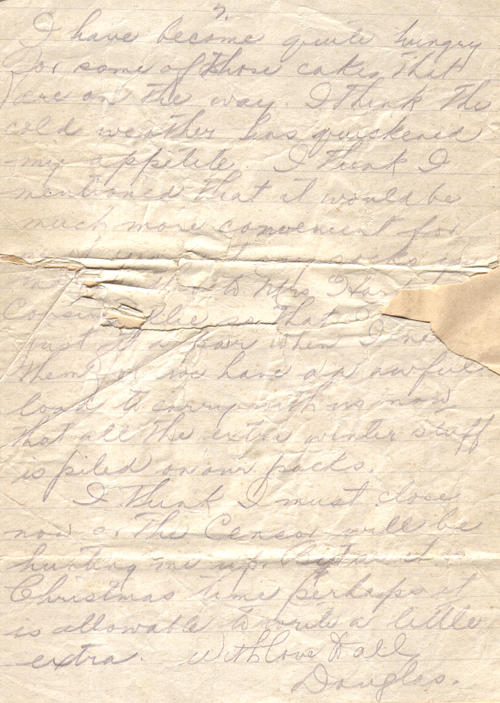 7.
I have become quite hungry
for some of those cakes that
are on the way. I think the
cold weather has quickened
my appetite. I think I
mentioned that it would be
much more convenient for
socks
to Mrs
so that I
pair when I
them, as we have an awful
load to carry with us now
that all the extra winter stuff
is piled on our packs.
I think I must close
now or the Censor will be
hunting me up. But as it is
Christmas time perhaps it
is allowable to write a little
extra. With love to all
Douglas.